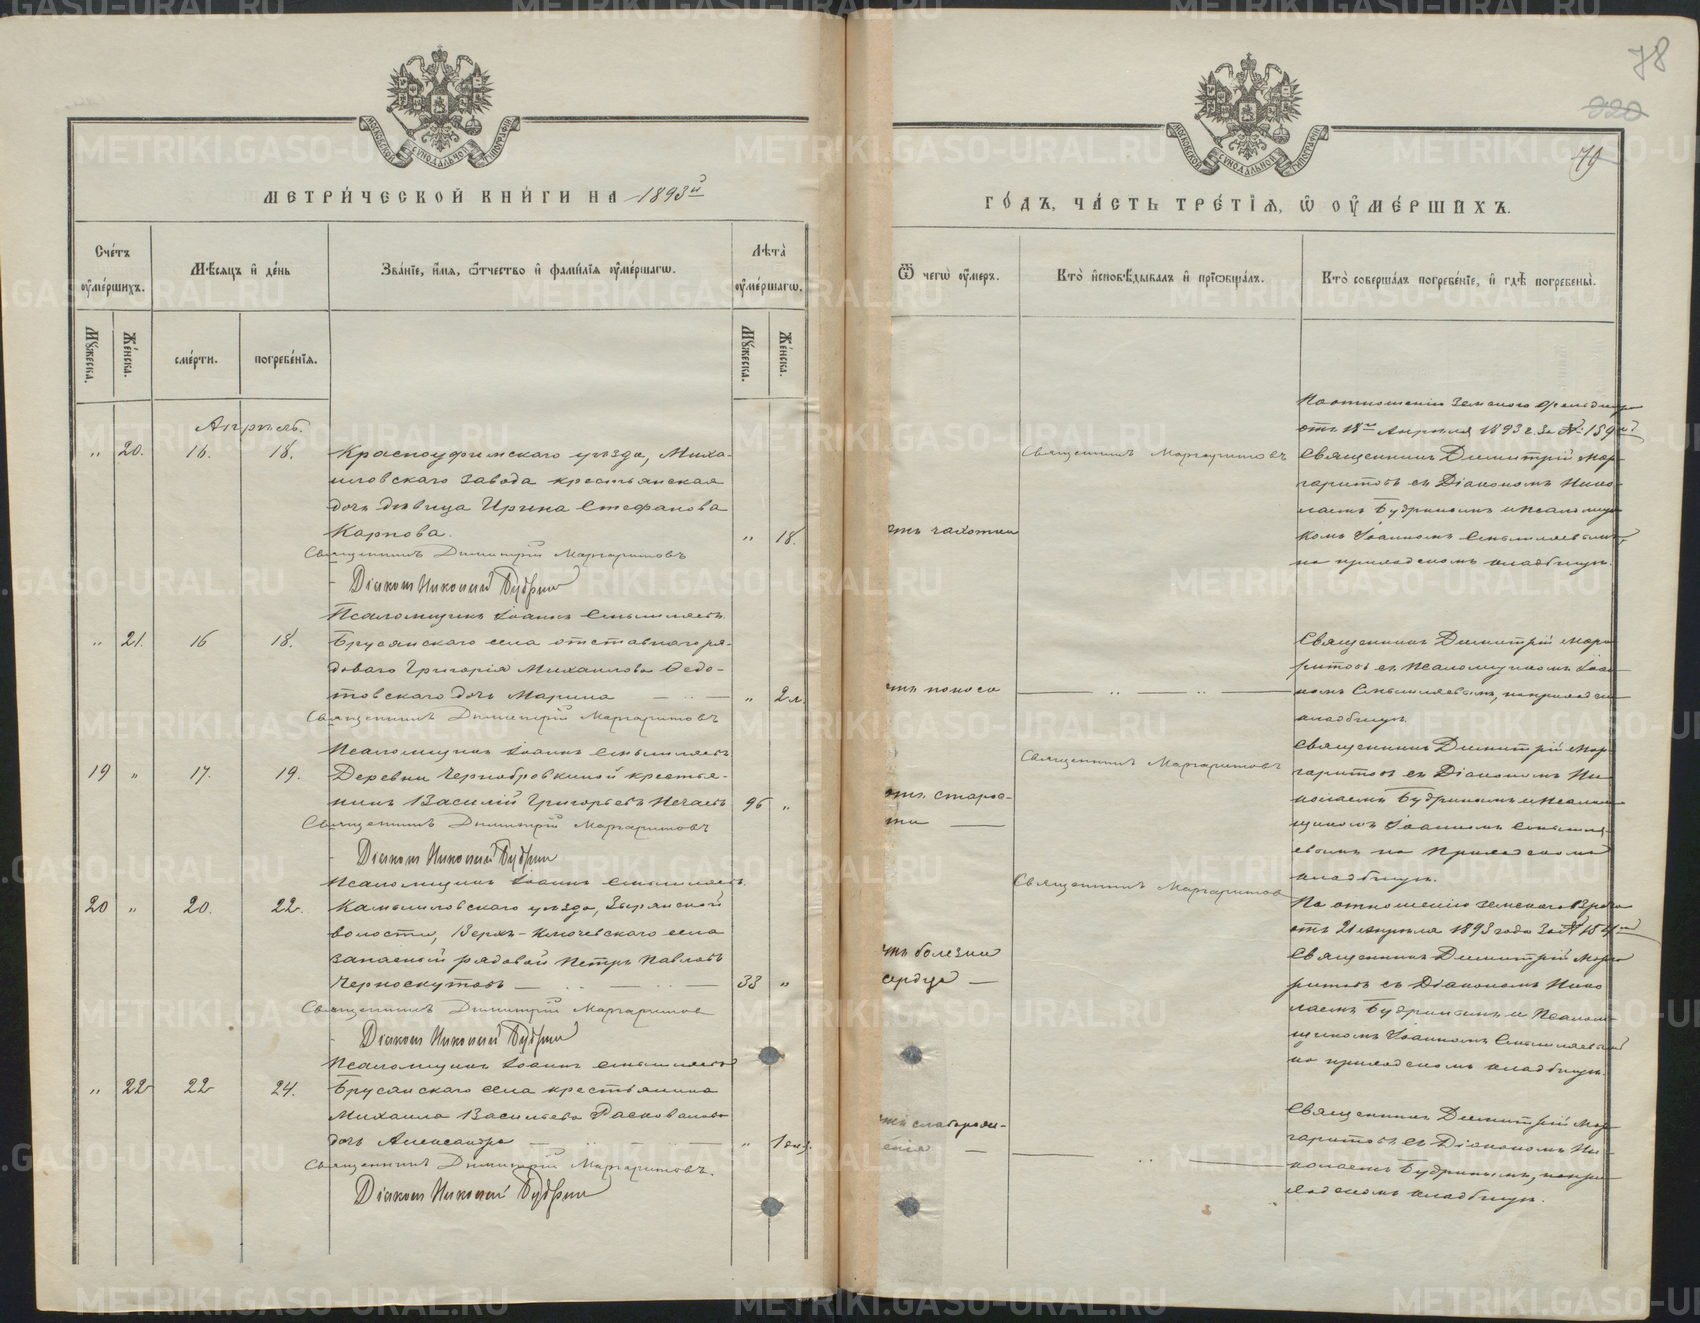 78
220
79
МЕТРИ́ЧЕСКОЙ КНИ́ГИ НА 1893й
ГО́ДЪ, ЧА́СТЬ ТРЕ́ТІѦ, Ѡ ОУ҆МЕ́РШИХЪ.
Сче́тъ оу҆ме́ршихъ.
Мѣ́сяцъ и҆ де́нь
Зва́нїе, и҆́мя, ѻ҆́тчество и҆ фами́лїя оу҆ме́ршагѡ.
Лѣ́та оу҆ме́ршагѡ.
Мꙋ́жеска.
Же́нска.
сме́рти.
погребе́нїя.
Мꙋ́жеска.
Же́нска.
Ѿ чегѡ̀ оу҆́меръ.
Кто̀ и҆сповѣ́дывалъ и҆ прїѡбща́лъ.
Кто̀ соверша́лъ погребе́нїе, и҆ гдѣ̀ погребены̀.
Апрѣль.
„ 20. 16. 18. Красноуфимскаго уѣзда, Миха-
иловскаго завода крестьянская
дочь дѣвица Ирина Стефанова
Карпова. „ 18.
Священникъ Димитрій Маргаритовъ
Діаконъ Николай Будринъ
Псаломщикъ Іоаннъ Смышляевъ
отъ чахотки
Священникъ Маргаритовъ
По отношенію Земскаго Фельдшера
отъ 18го Апрѣля 1893 г. за № 159мъ
Священникъ Димитрій Мар-
гаритовъ съ Діакономъ Нико-
лаемъ Будринымъ и Псаломщи-
комъ Іоанномъ Смышляевымъ,
на приходскомъ кладбищѣ.
„ 21. 16 18. Брусянскаго села отставнаго ря-
доваго Григорія Михаилова Ѳедо-
товскаго дочь Марина „ 2 м.
Священникъ Димитрій Маргаритовъ
Псаломщикъ Іоаннъ Смышляевъ
отъ поноса
Священникъ Димитрій Марга-
ритовъ съ Псаломщикомъ Іоан-
номъ Смышляевымъ, на приходскомъ
кладбищѣ.
19 „ 17. 19. Деревни Чернобровкиной крестья-
нинъ Василій Григорьевъ Нечаевъ 96 „
Священникъ Димитрій Маргаритовъ
Діаконъ Николай Будринъ
Псаломщикъ Іоаннъ Смышляевъ.
отъ старос-
ти
Священникъ Маргаритовъ
Священникъ Димитрій Мар-
гаритовъ съ Діакономъ Ни-
колаемъ Будринымъ и Псалом-
щикомъ Іоанномъ Смышля-
евымъ на приходскомъ
кладбищѣ.
20 „ 20. 22. Камышловскаго уѣзда, Зырянской
волости, Верхъ-Ключевскаго села
запасной рядовой Петръ Павловъ
Черноскутовъ 33 „
Священникъ Димитрій Маргаритовъ
Діаконъ Николай Будринъ
Псаломщикъ Іоаннъ Смышляевъ
отъ болезни
сердца
Священникъ Маргаритовъ
По отношенію земскаго Врача
отъ 21 Апрѣля 1893 года за №
Священникъ Димитрій Марга-
ритовъ съ Діакономъ Нико-
лаемъ Будринымъ и Псалом-
щикомъ Іоанномъ Смышляевымъ
на приходскомъ кладбищѣ.
„ 22 22 24. Брусянскаго села крестьянина
Михаила Васильева
дочь Александра „ 1
Священникъ Димитрій Маргаритовъ.
Діаконъ Николай Будринъ
отъ слаборож-
денія
Священникъ Димитрій Мар-
гаритовъ съ Діакономъ Ни-
колаемъ Будринымъ, на при-
ходскомъ кладбищѣ.
METRIKI.GASO-URAL.RU